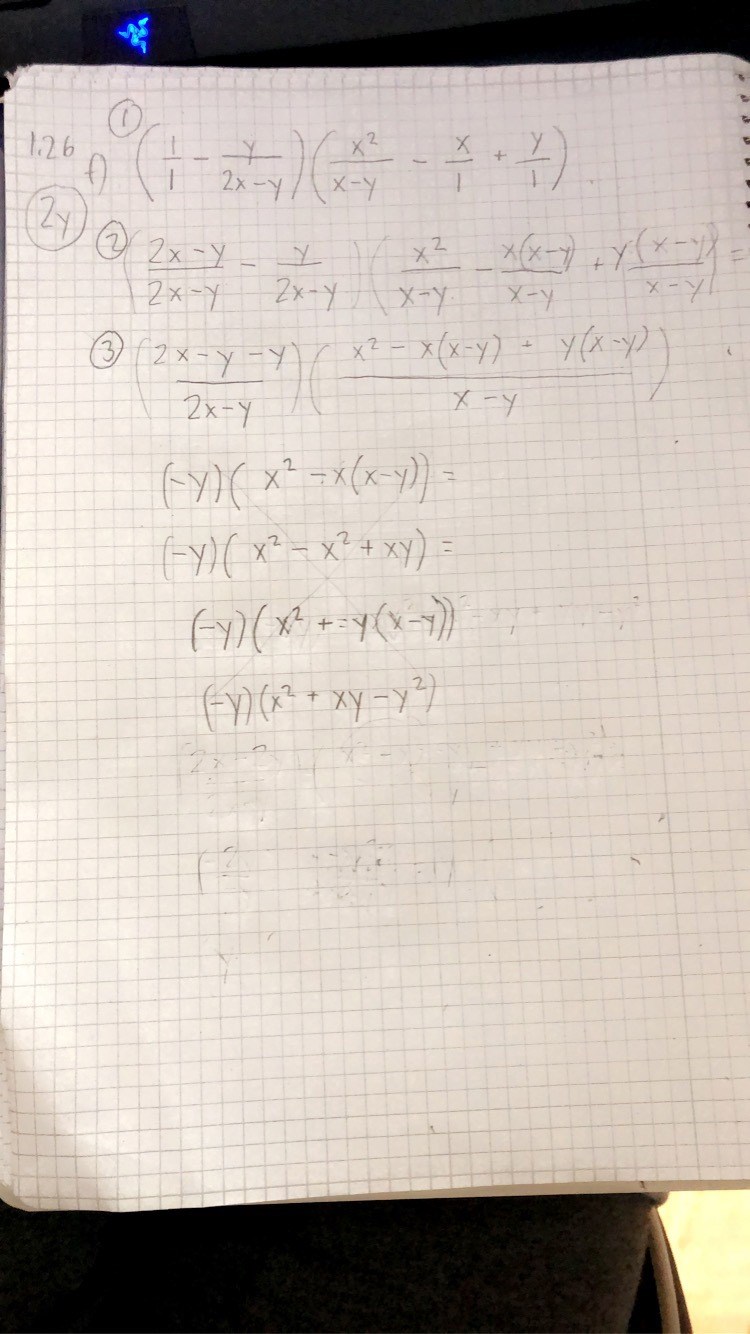 ①
1.26 f) (1/1 - y/(2x-y)) (x²/(x-y) - x/1 + y/1)
2y
② ((2x-y)/(2x-y) - y/(2x-y)) (x²/(x-y) - x(x-y)/(x-y) + y(x-y)/(x-y)) =
③ ((2x-y-y)/(2x-y)) ((x² - x(x-y) + y(x-y))/(x-y))
(-y)(x² - x(x-y)) =
(-y)(x² - x² + xy) =
(-y)(x² + = y(x-y))
(-y)(x² + xy - y²)